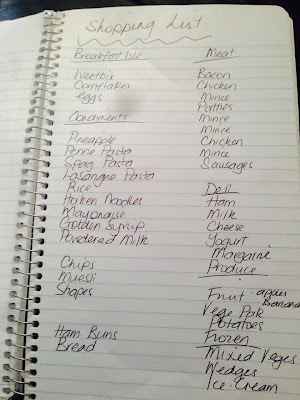 Shopping List
Breakfast Isle
Weetbix
Cornflakes
eggs
Condiments
Pineapple
Penne Pasta
Spag Pasta
Lasangne Pasta
Rice
Hokien Noodles
Mayonaise
Golden Syrup
Powdered Milk
Chips
Muesli
Shapes
Ham Buns
Bread
Meat
Bacon
Chicken
Mince
Patties
Mince
Mince
Chicken
Mince
Sausages
Deli
Ham
Milk
Cheese
Yogurt
Margarine
Produce
Fruit apples
Banana
Vege Pak
Potatoes
Frozen
Mixed Veges
Wedges
Ice-Cream